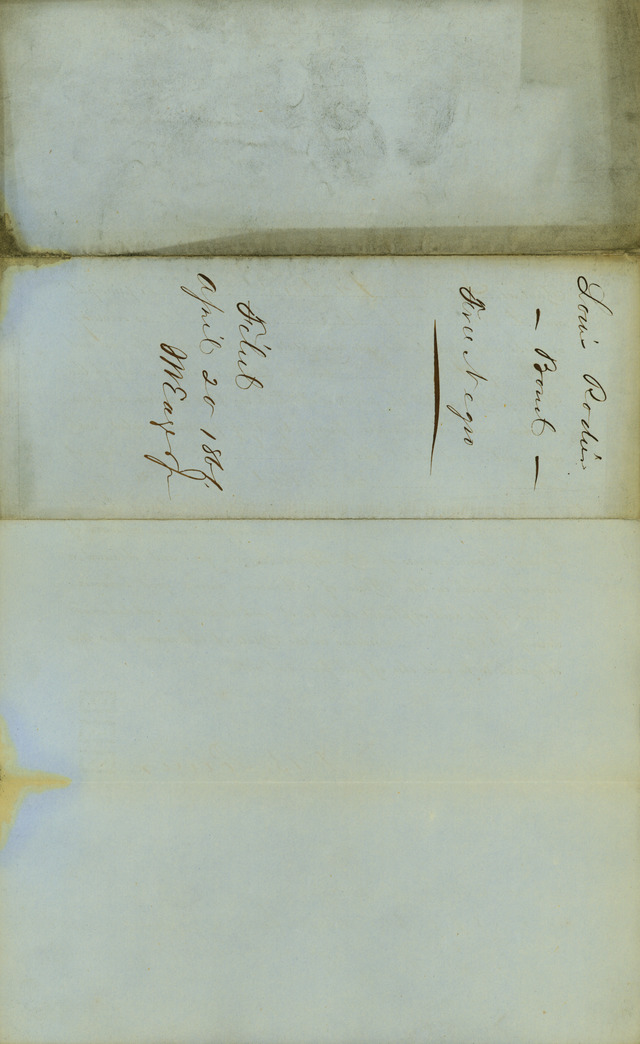 Louis Rodier
— Bond —
Free Negro
Filed
April 20